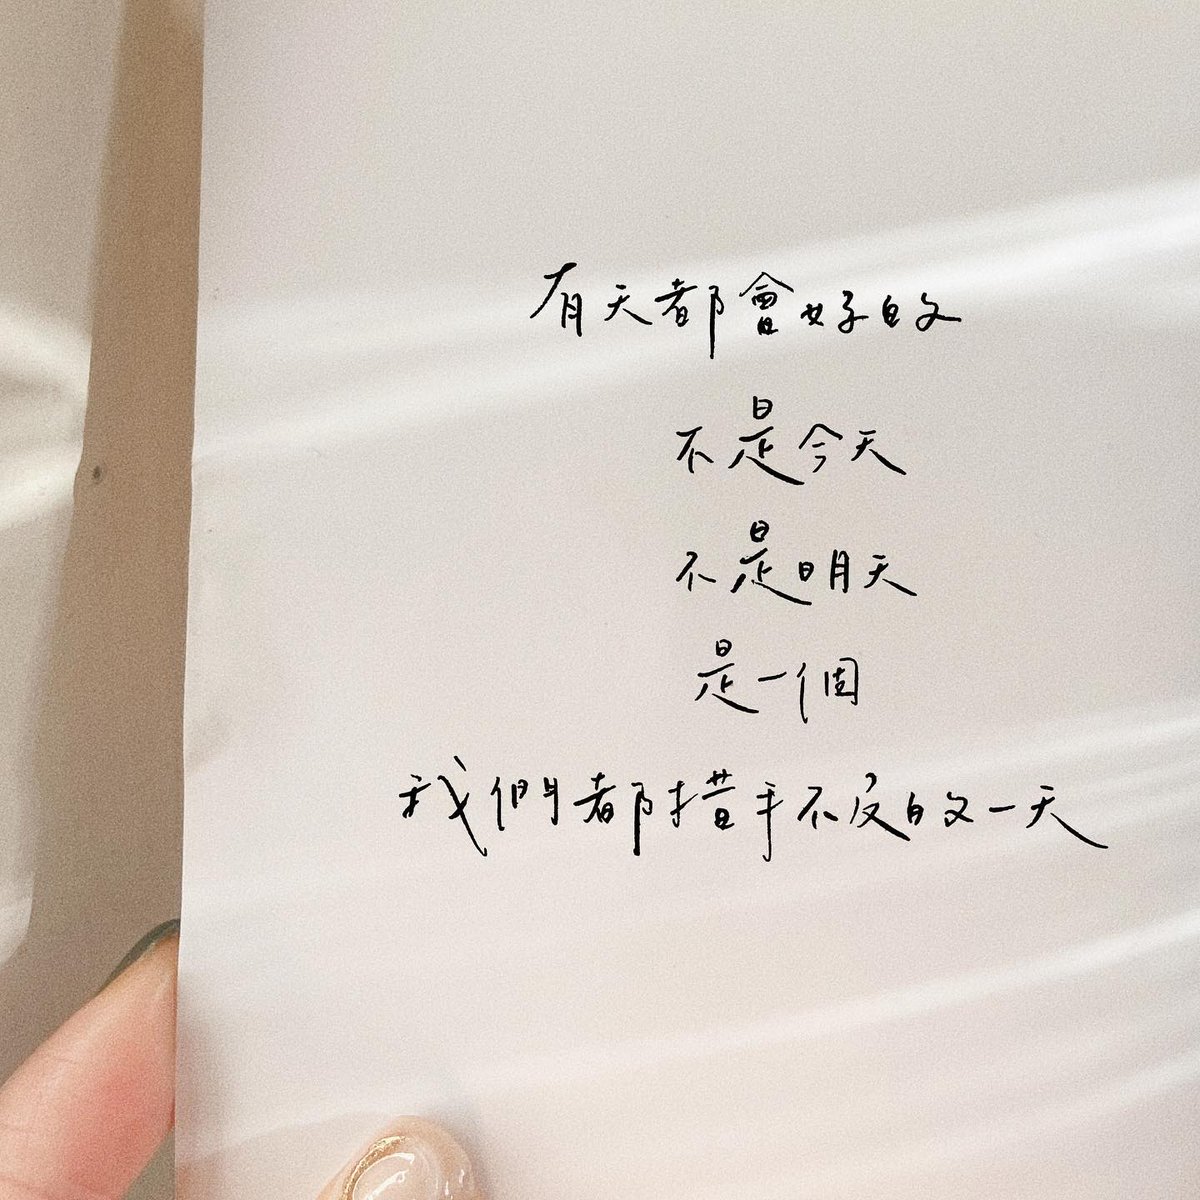 有天都會好的
不是今天
不是明天
是一個
我們都措手不及的一天